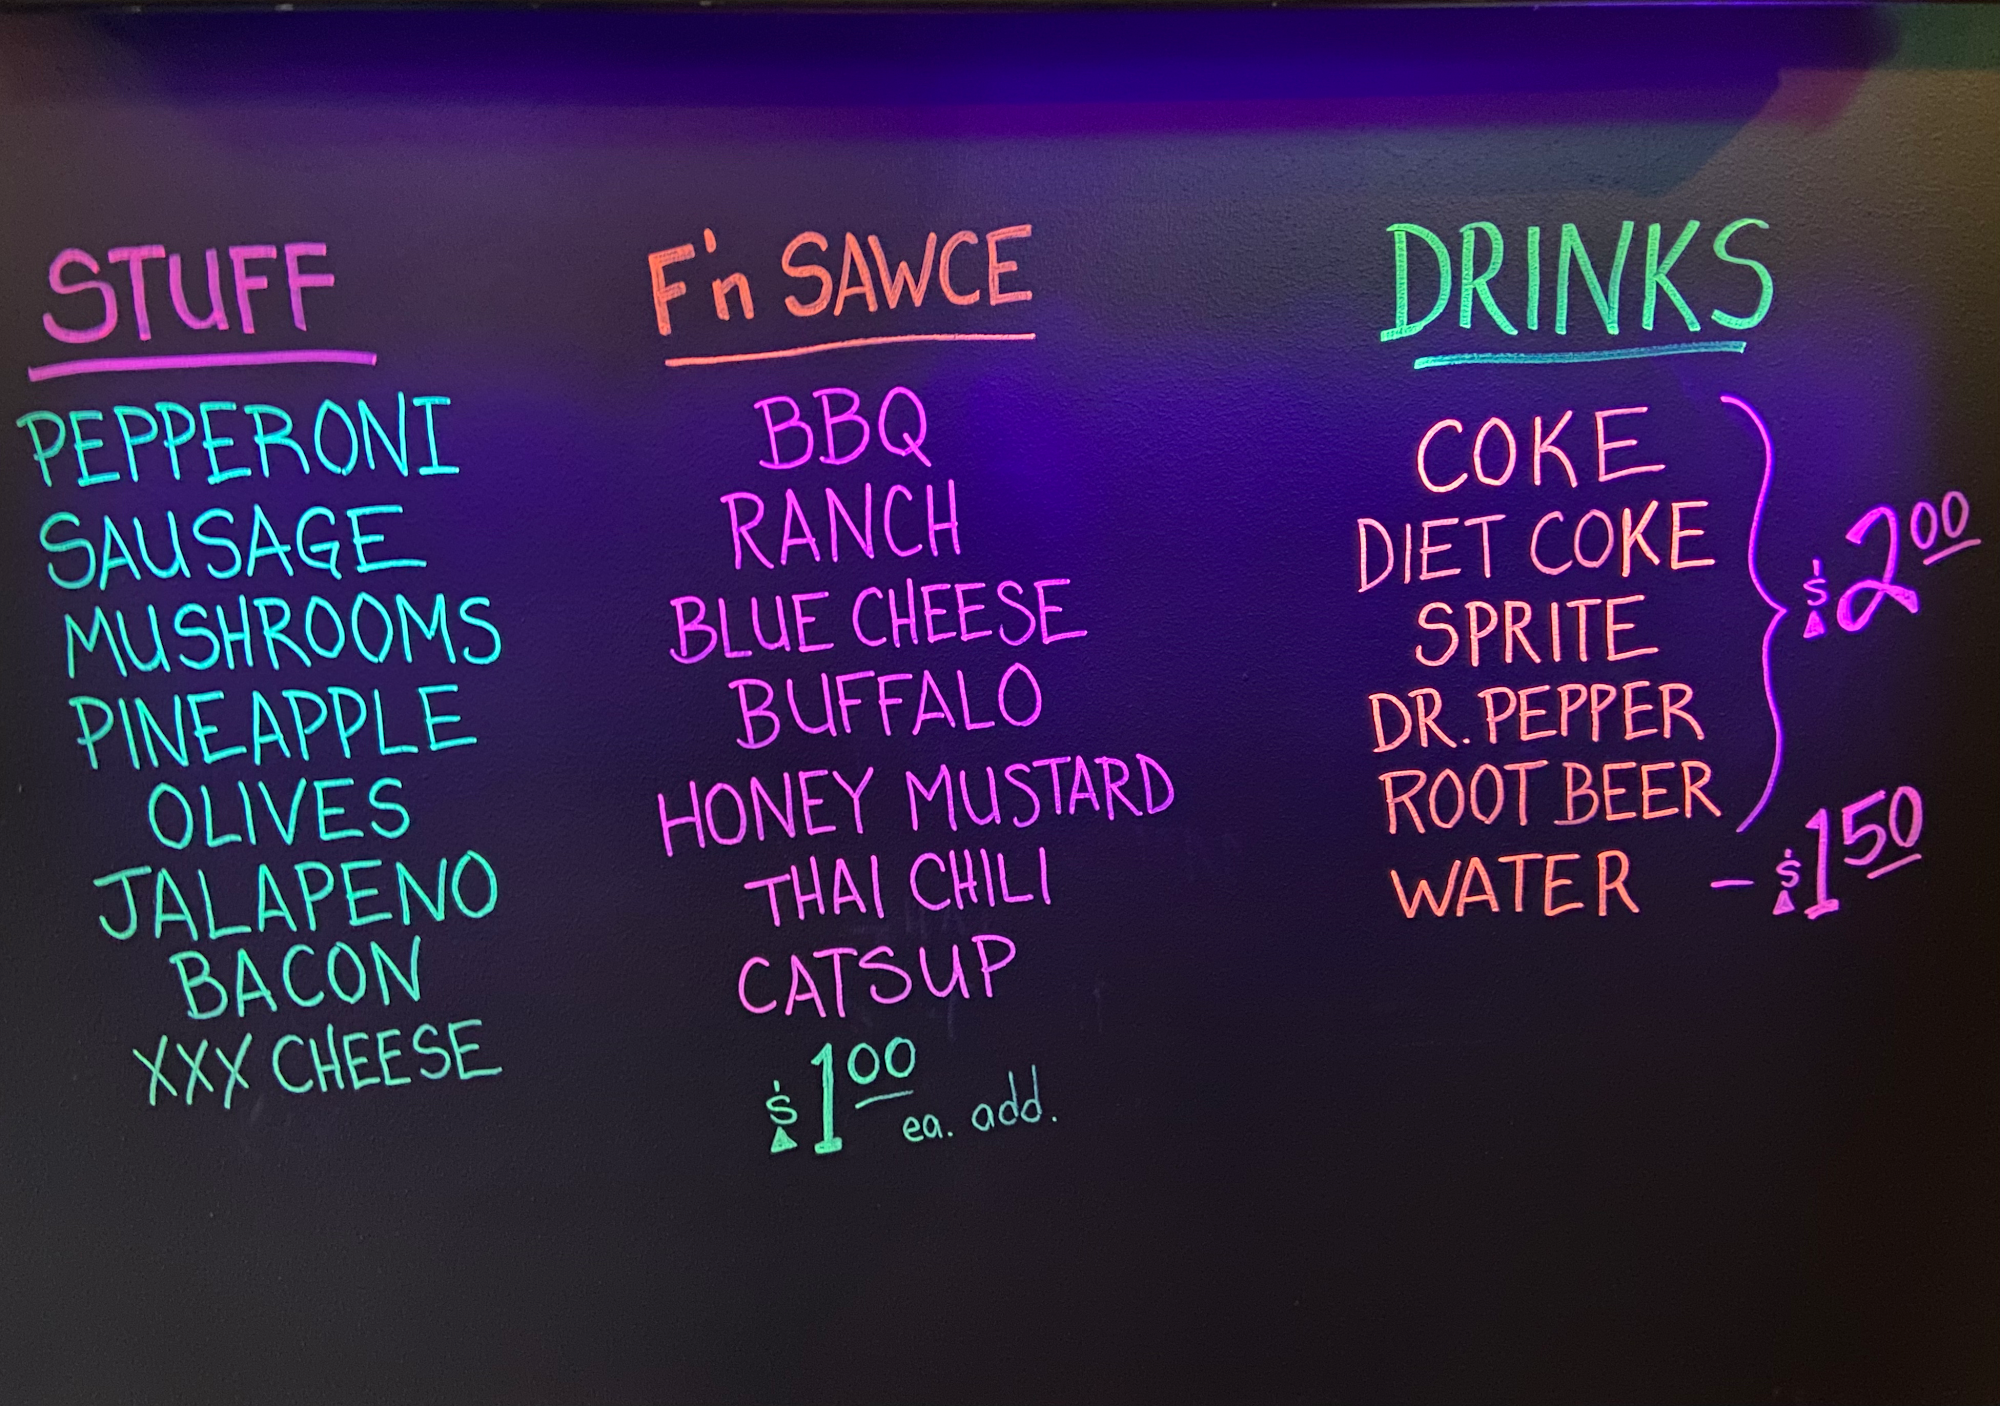 STUFF
PEPPERONI
SAUSAGE
MUSHROOMS
PINEAPPLE
OLIVES
JALAPENO
BACON
XXX CHEESE
F'n SAWCE
BBQ
RANCH
BLUE CHEESE
BUFFALO
HONEY MUSTARD
THAI CHILI
CATSUP
$1.00 ea. add.
DRINKS
COKE
DIET COKE
SPRITE
DR. PEPPER
ROOT BEER
$2.00
WATER - $1.50